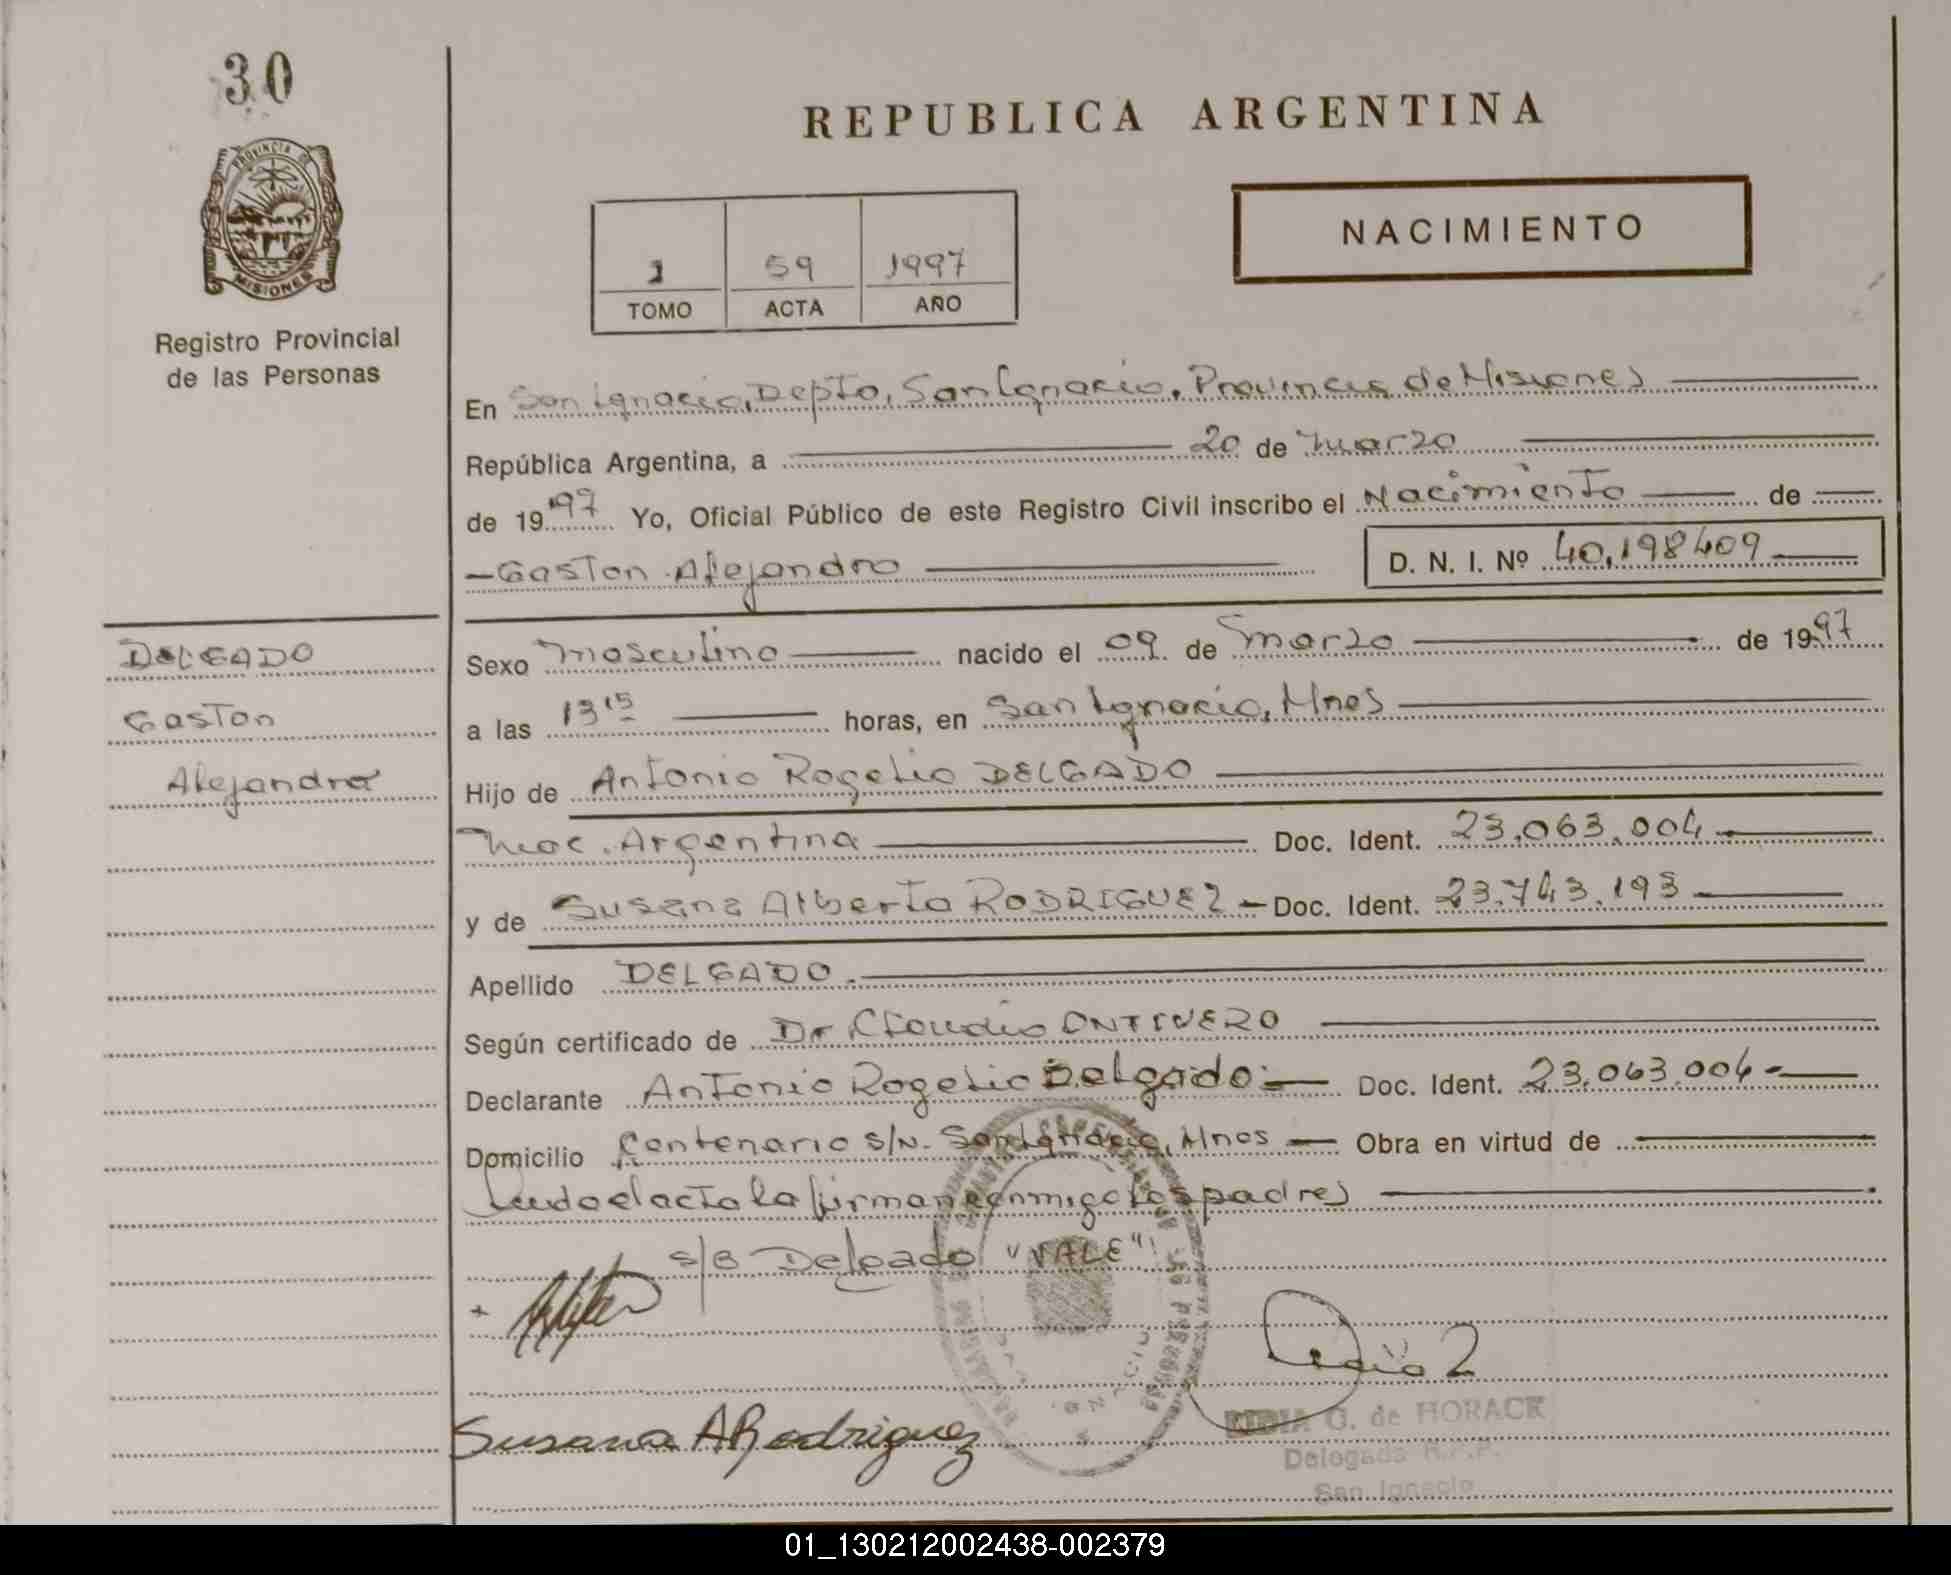 30
PROVINCIA DE
MISIONES
Registro Provincial
de las Personas
REPUBLICA ARGENTINA
1 59 1997
TOMO ACTA AÑO
NACIMIENTO
En San Ignacio, Depto, San Ignacio, Provincia de Misiones
República Argentina, a 20 de marzo
de 1997 Yo, Oficial Público de este Registro Civil inscribo el Nacimiento de
Gaston Alejandro D. N. I. Nº 40,198409
DELGADO
Gaston
Alejandro
Sexo masculino nacido el 09 de marzo de 1997
a las 13 15 horas, en San Ignacio, Mnes
Hijo de Antonio Rogelio DELGADO
nac. Argentina Doc. Ident. 23.063.004
y de Susana Alberta RODRIGUEZ Doc. Ident. 23.743.193
Apellido DELGADO.
Según certificado de Dr. Claudio ONTIVERO
Declarante Antonio Rogelio Delgado Doc. Ident. 23.063.004
Domicilio Centenario s/N. San Ignacio, Mnes Obra en virtud de
Leido el acta la firman conmigo los padres
s/B Delgado "VALE"
Susana A Rodriguez
G. de HORACK
Delegada R.P.P.
San Ignacio
01_130212002438-002379